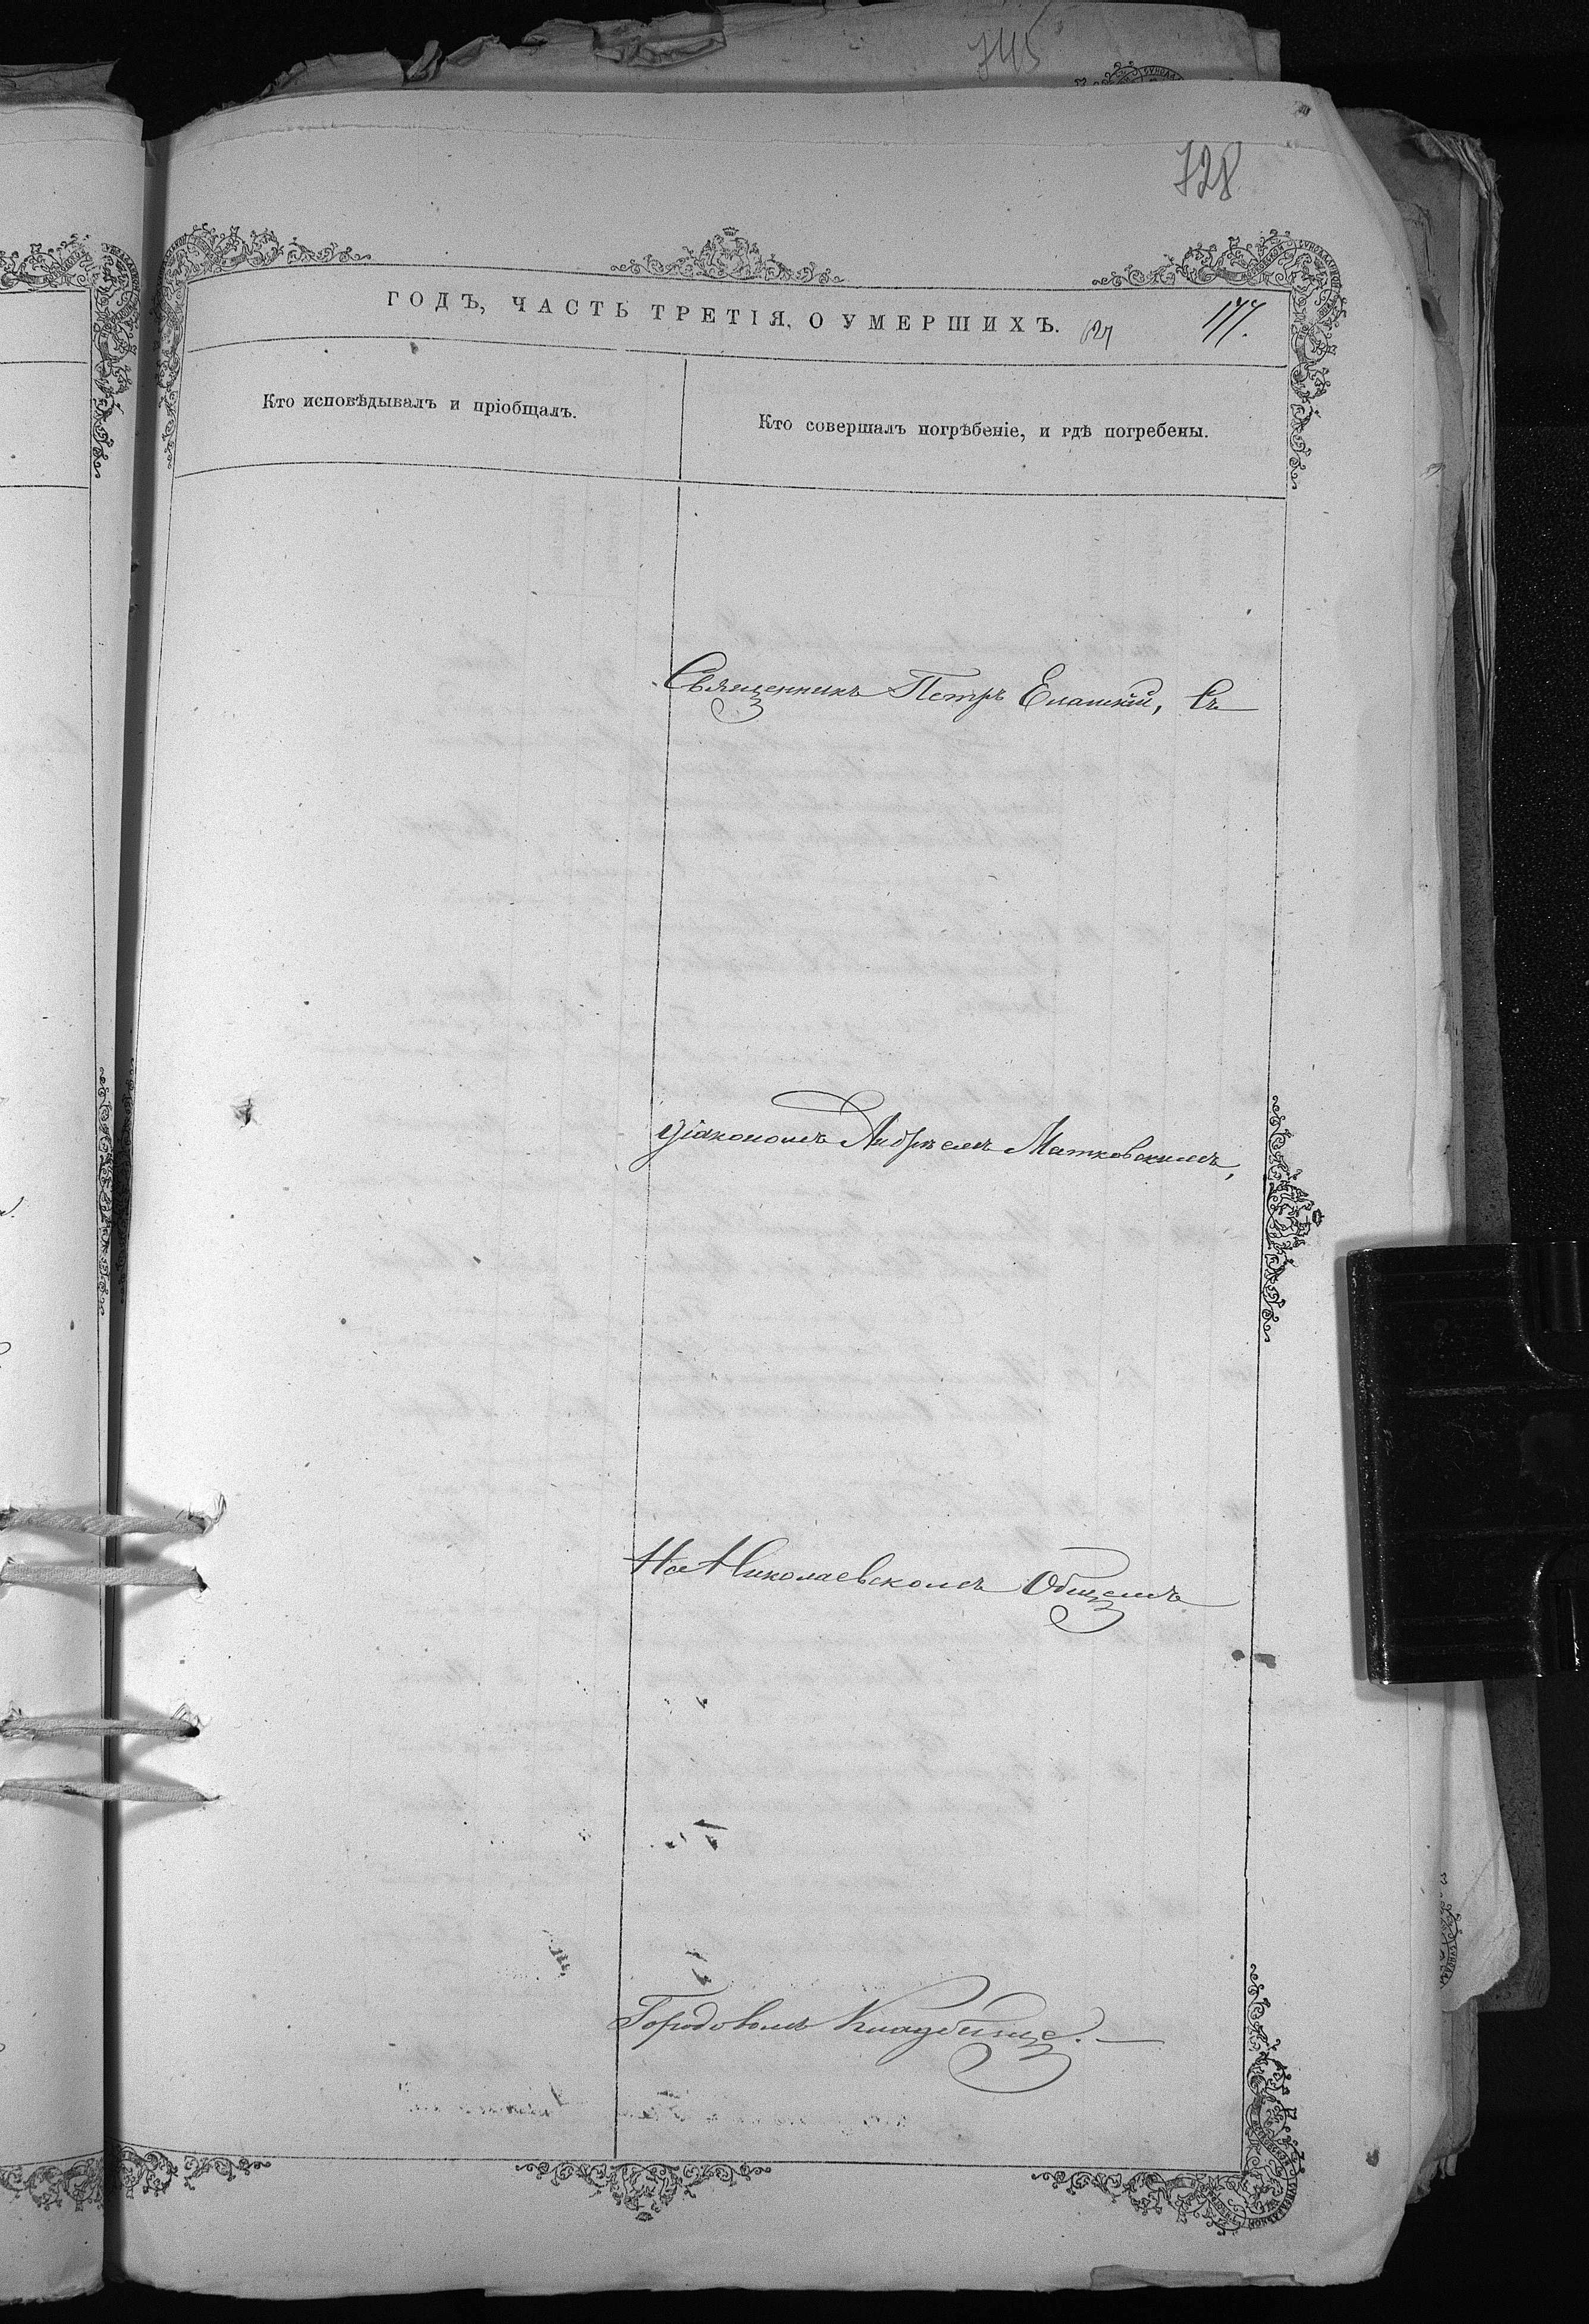 745
728
ГОДЪ, ЧАСТЬ ТРЕТІЯ, О УМЕРШИХЪ. 177.
Кто исповѣдывалъ и пріобщалъ.
Кто совершалъ погрѣбеніе, и гдѣ погребены.
Священникъ Петръ Елаткій, Съ
діакономъ Андреемъ Матковскимъ,
На Николаевскомъ Общемъ
Городовомъ Кладбище.